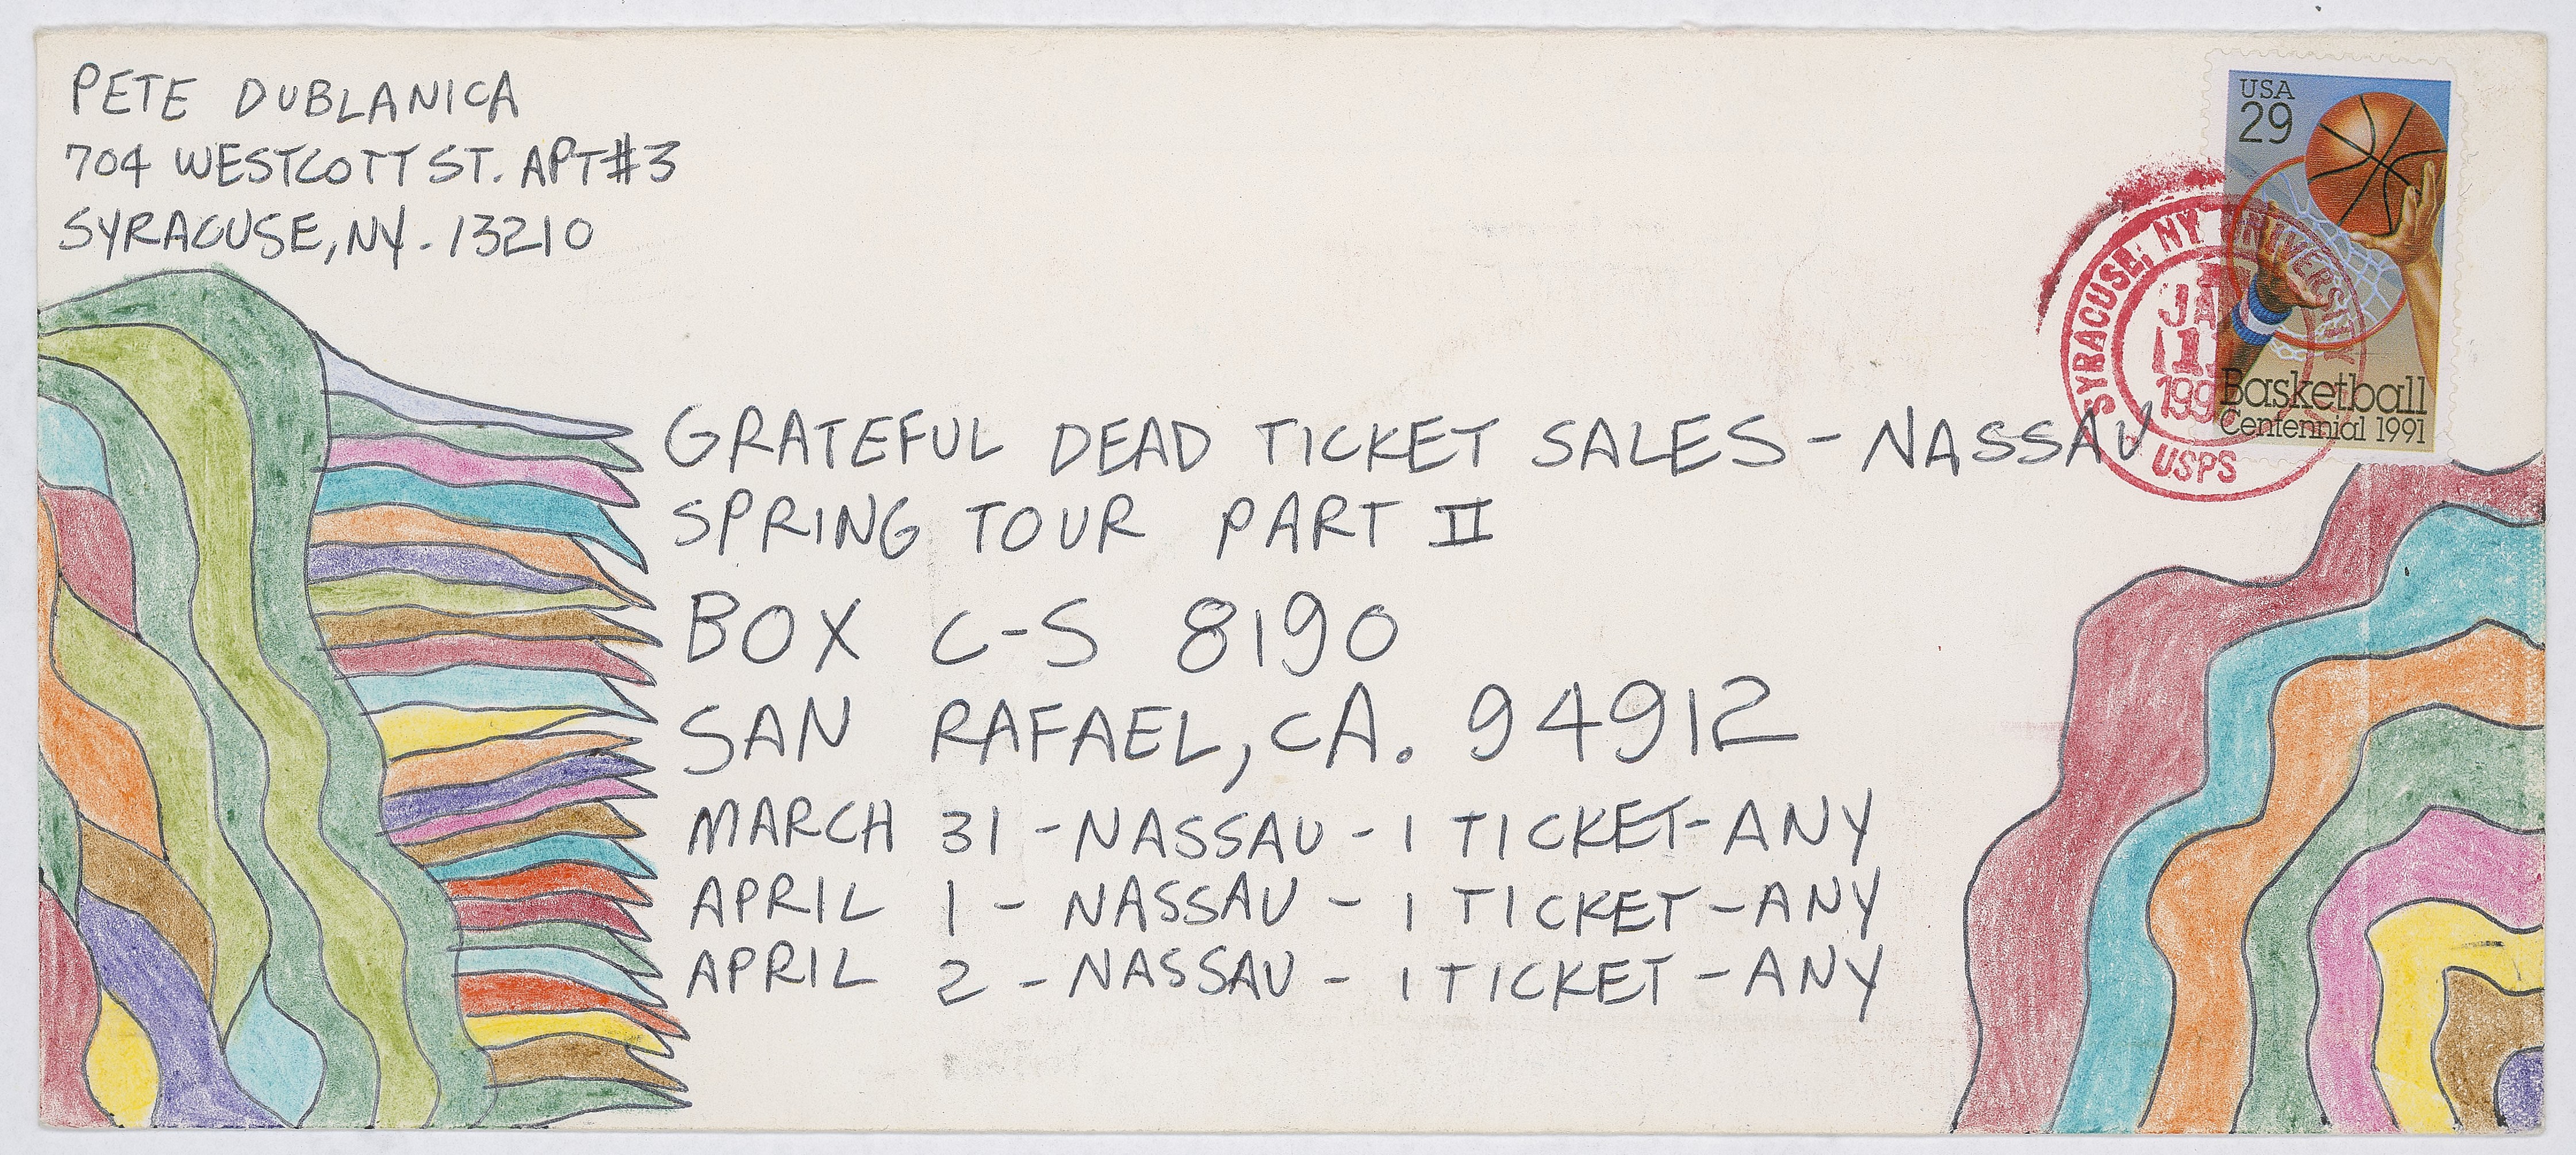 PETE DUBLANICA
704 WESTCOTT ST. APT#3
SYRACUSE, NY. 13210
USA
29
Basketball
Centennial 1991
SYRACUSE, NY UNIVERSITY
USPS
GRATEFUL DEAD TICKET SALES - NASSAU
SPRING TOUR PART II
BOX C-S 8190
SAN RAFAEL, CA. 94912
MARCH 31 - NASSAU - 1 TICKET - ANY
APRIL 1 - NASSAU - 1 TICKET - ANY
APRIL 2 - NASSAU - 1 TICKET - ANY